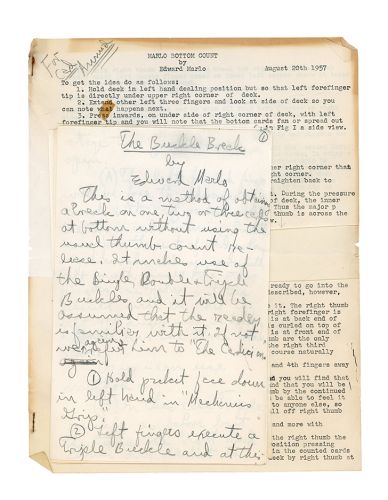 For
MARLO BOTTOM COUNT
by
Edward Marlo
August 20th 1957
To get the idea do as follows:
1. Hold deck in left hand dealing position but so that left forefinger
tip is directly under upper right corner of deck.
2. Extend other left three fingers and look at side of deck so you
can note what happens next.
3. Press inwards, on under side of right corner of deck, with left
forefinger tip and you will note that the bottom cards fan or spread out
in Fig I a side view.
The Buckle Break
by
Edward Marlo
This is a method of obtaining
a break on one, two or three cards
at bottom without using the
usual thumb count re-
lease. It makes use of
the Single Double & Triple
Buckles and it will be
assumed that the reader
is familiar with it. If not
again refer him to "The Cardician"
① Hold packet face down
in left hand in "Mechanics
Grip".
② Left fingers execute a
Triple Buckle and at the
her right corner that
ght corner.
raighten back to
t. During the pressure
of deck, the inner
Thus the major p
thumb is across the
w.
ready to go into the
escribed, however,
e it. The right thumb
right forefinger is
is at back end of
is curled on top of
is at front end of
mb are the only
the right third
course naturally
and 4th fingers away
nd you will find that
nd that you will be
umb by the continued
be able to feel it
to anyone else, so
ll off right thumb
and more with
the right thumb the
osition pressing
in the counted cards
eck by right thumb at